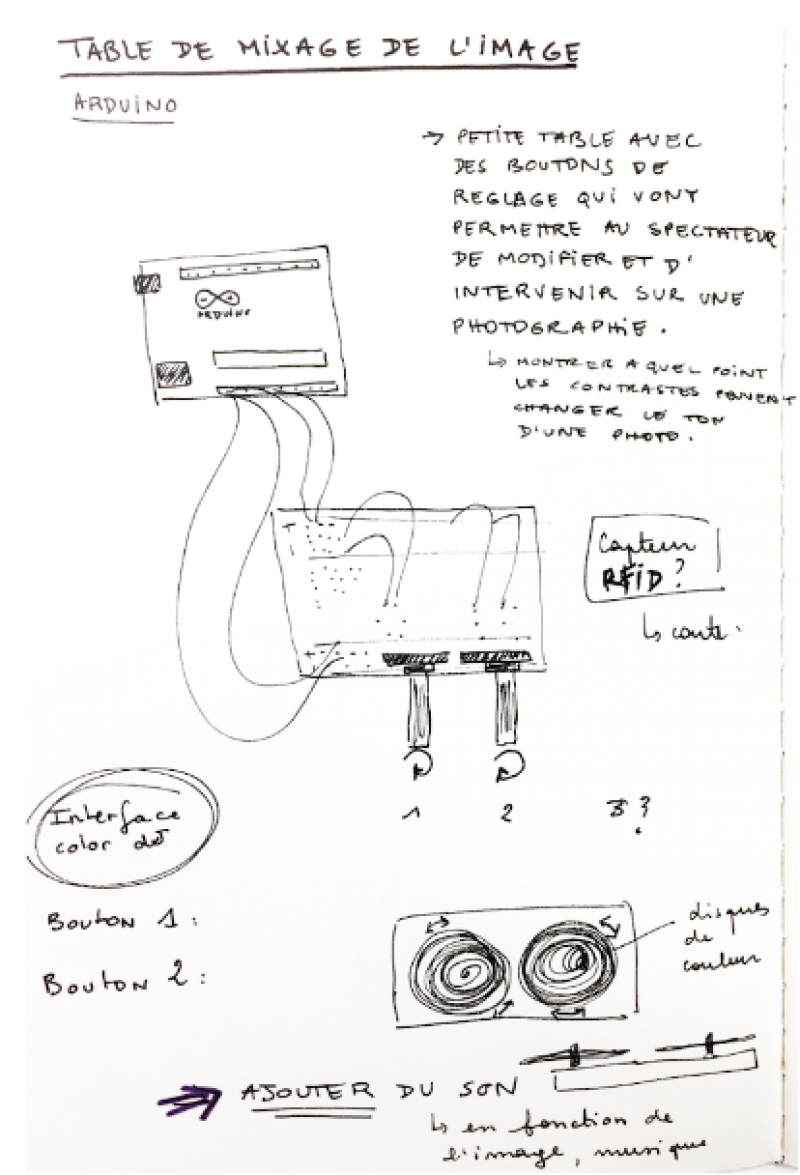 TABLE DE MIXAGE DE L'IMAGE
ARDUINO
→ PETITE TABLE AVEC
DES BOUTONS DE
REGLAGE QUI VONT
PERMETTRE AU SPECTATEUR
DE MODIFIER ET D'
INTERVENIR SUR UNE
PHOTOGRAPHIE.
↳ MONTRER A QUEL POINT
LES CONTRASTES PEUVENT
CHANGER LE TON
D'UNE PHOTO.
ARDUINO
Capteur
RFID ?
↳ carte.
1 2 3 ?
Interface
color
Bouton 1 :
Bouton 2 :
disques
de
couleur
→ AJOUTER DU SON
↳ en fonction de
l'image, musique